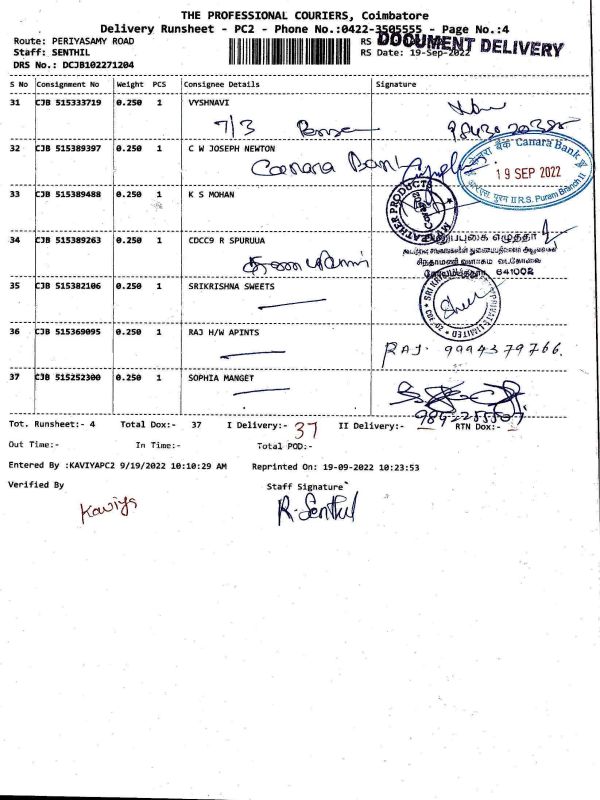 THE PROFESSIONAL COURIERS, Coimbatore
Delivery Runsheet - PC2 - Phone No.:0422-3505555 - Page No.:4
Route: PERIYASAMY ROAD RS
DOCUMENT DELIVERY
Staff: SENTHIL RS Date: 19-Sep-2022
DRS No.: DCJB102271204
S No Consignment No Weight PCS Consignee Details Signature
31 CJB 515333719 0.250 1 VYSHNAVI
7/3
32 CJB 515389397 0.250 1 C W JOSEPH NEWTON
Canara Bank
केनरा बैंक Canara Bank
19 SEP 2022
II R.S. Puram Branch II
33 CJB 515389488 0.250 1 K S MOHAN
LEATHER PRODUCTS
34 CJB 515389263 0.250 1 CDCC9 R SPURUUA
சிந்தாமணி வளாகம் வடகோவை
641002
35 CJB 515382106 0.250 1 SRIKRISHNA SWEETS
36 CJB 515369095 0.250 1 RAJ H/W APINTS
RAJ. 9994379766.
37 CJB 515252300 0.250 1 SOPHIA MANGET
Tot. Runsheet:- 4 Total Dox:- 37 I Delivery:- 37 II Delivery:- RTN Dox:-
Out Time:- In Time:- Total POD:-
Entered By :KAVIYAPC2 9/19/2022 10:10:29 AM Reprinted On: 19-09-2022 10:23:53
Verified By Staff Signature
Kaviya R.Senthil